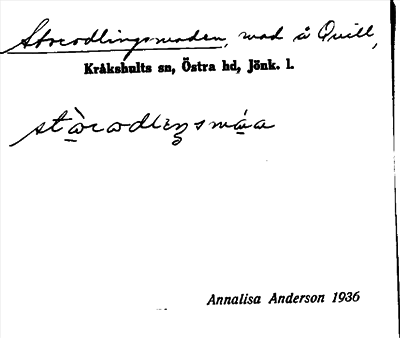 Storodlingsmaden, mad å Qvill,
Kråkshults sn, Östra hd, Jönk. l.
Annalisa Anderson 1936